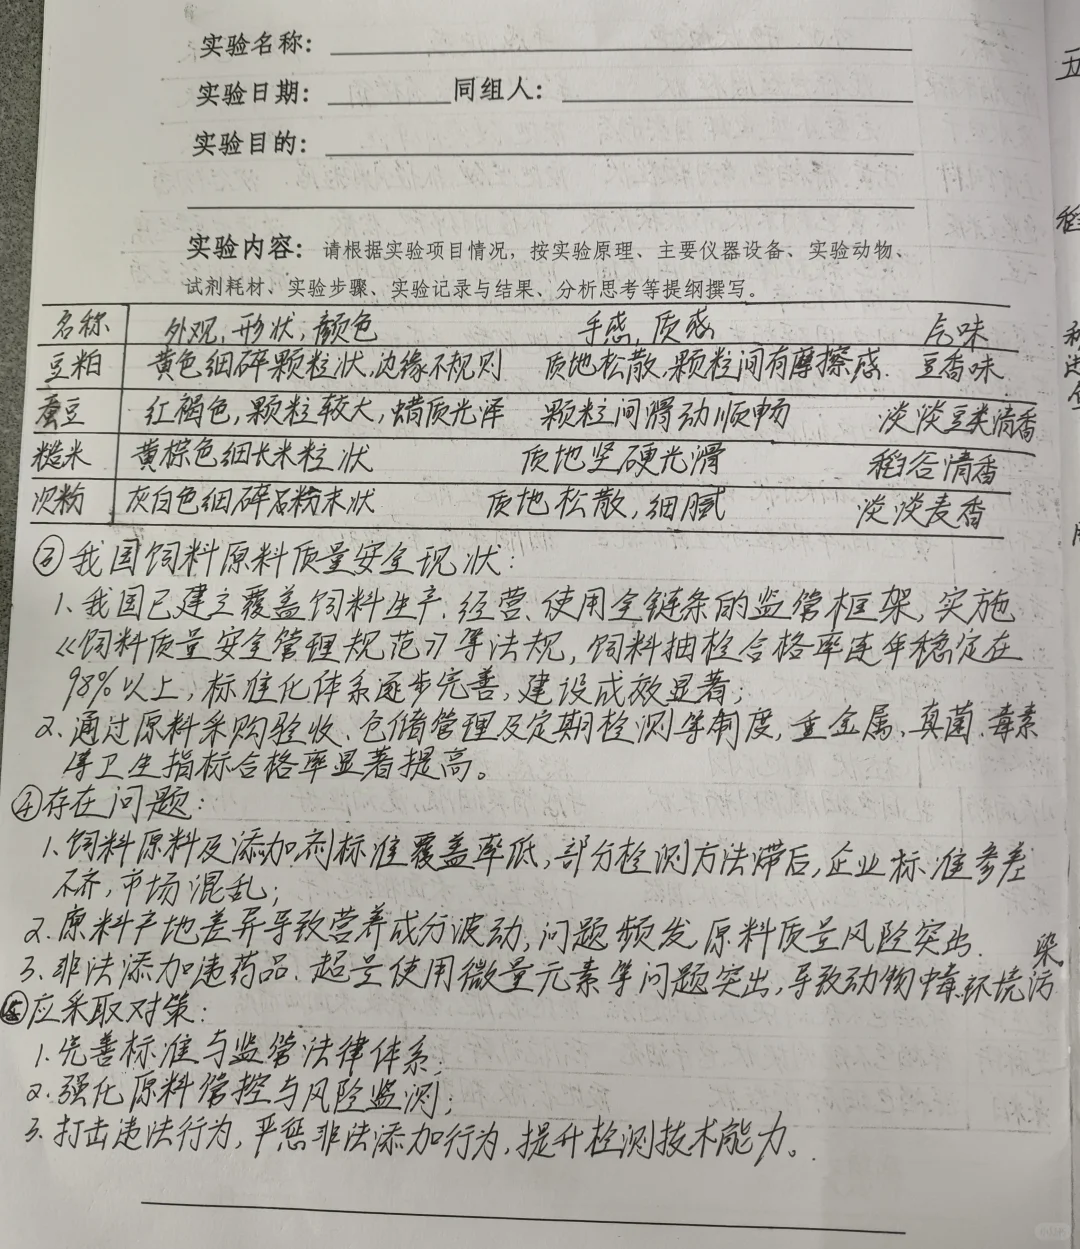 实验名称：
实验日期： 同组人：
实验目的：
实验内容：请根据实验项目情况，按实验原理、主要仪器设备、实验动物、
试剂耗材、实验步骤、实验记录与结果、分析思考等提纲撰写。
名称 外观,形状,颜色 手感,质感 气味
豆粕 黄色细碎颗粒状,边缘不规则 质地松散,颗粒间有摩擦感. 豆香味
蚕豆 红褐色,颗粒较大,蜡质光泽 颗粒间滑动顺畅 淡淡豆类清香
糙米 黄棕色细长米粒状 质地坚硬光滑 稻谷清香
次粉 灰白色细碎粉末状 质地松散,细腻 淡淡麦香
③我国饲料原料质量安全现状：
1、我国已建立覆盖饲料生产、经营、使用全链条的监管框架,实施
《饲料质量安全管理规范》等法规,饲料抽检合格率连年稳定在
98%以上,标准化体系逐步完善,建设成效显著；
2、通过原料采购验收、仓储管理及定期检测等制度,重金属、真菌毒素
等卫生指标合格率显著提高。
④存在问题：
1、饲料原料及添加剂标准覆盖率低,部分检测方法滞后,企业标准参差
不齐,市场混乱；
2.原料产地差异导致营养成分波动,问题频发,原料质量风险突出.
3、非法添加违药品、超量使用微量元素等问题突出,导致动物中毒、环境污
染
⑤应采取对策：
1.完善标准与监管法律体系；
2.强化原料管控与风险监测；
3.打击违法行为,严惩非法添加行为,提升检测技术能力。